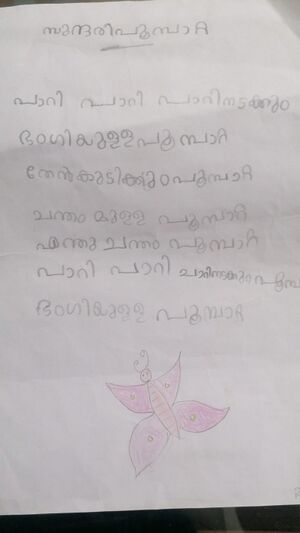 സുന്ദരിപൂമ്പാറ്റ
പാറി പാറി പാറിനടക്കും
ഭംഗിയുള്ളപൂമ്പാറ്റ
തേൻകുടിക്കുംപൂമ്പാറ്റ
ചന്തമുള്ള പൂമ്പാറ്റ
എന്തുചന്തം പൂമ്പാറ്റ
പാറി പാറി പാറിനടക്കുംപൂമ്പാ
ഭംഗിയുള്ള പൂമ്പാറ്റ